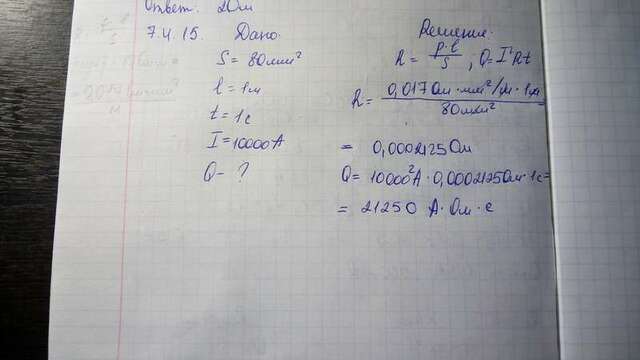 Ответ: 2Ом
7.4.15. Дано:
S = 80мм²
l = 1м
t = 1с
I = 10000А
Q - ?
Решение:
R = ρ·l/S, Q = I²Rt
R = 0,017Ом·мм²/м·1м/80мм²
= 0,0002125Ом
Q = 10000²А·0,0002125Ом·1с=
= 21250 А·Ом·с